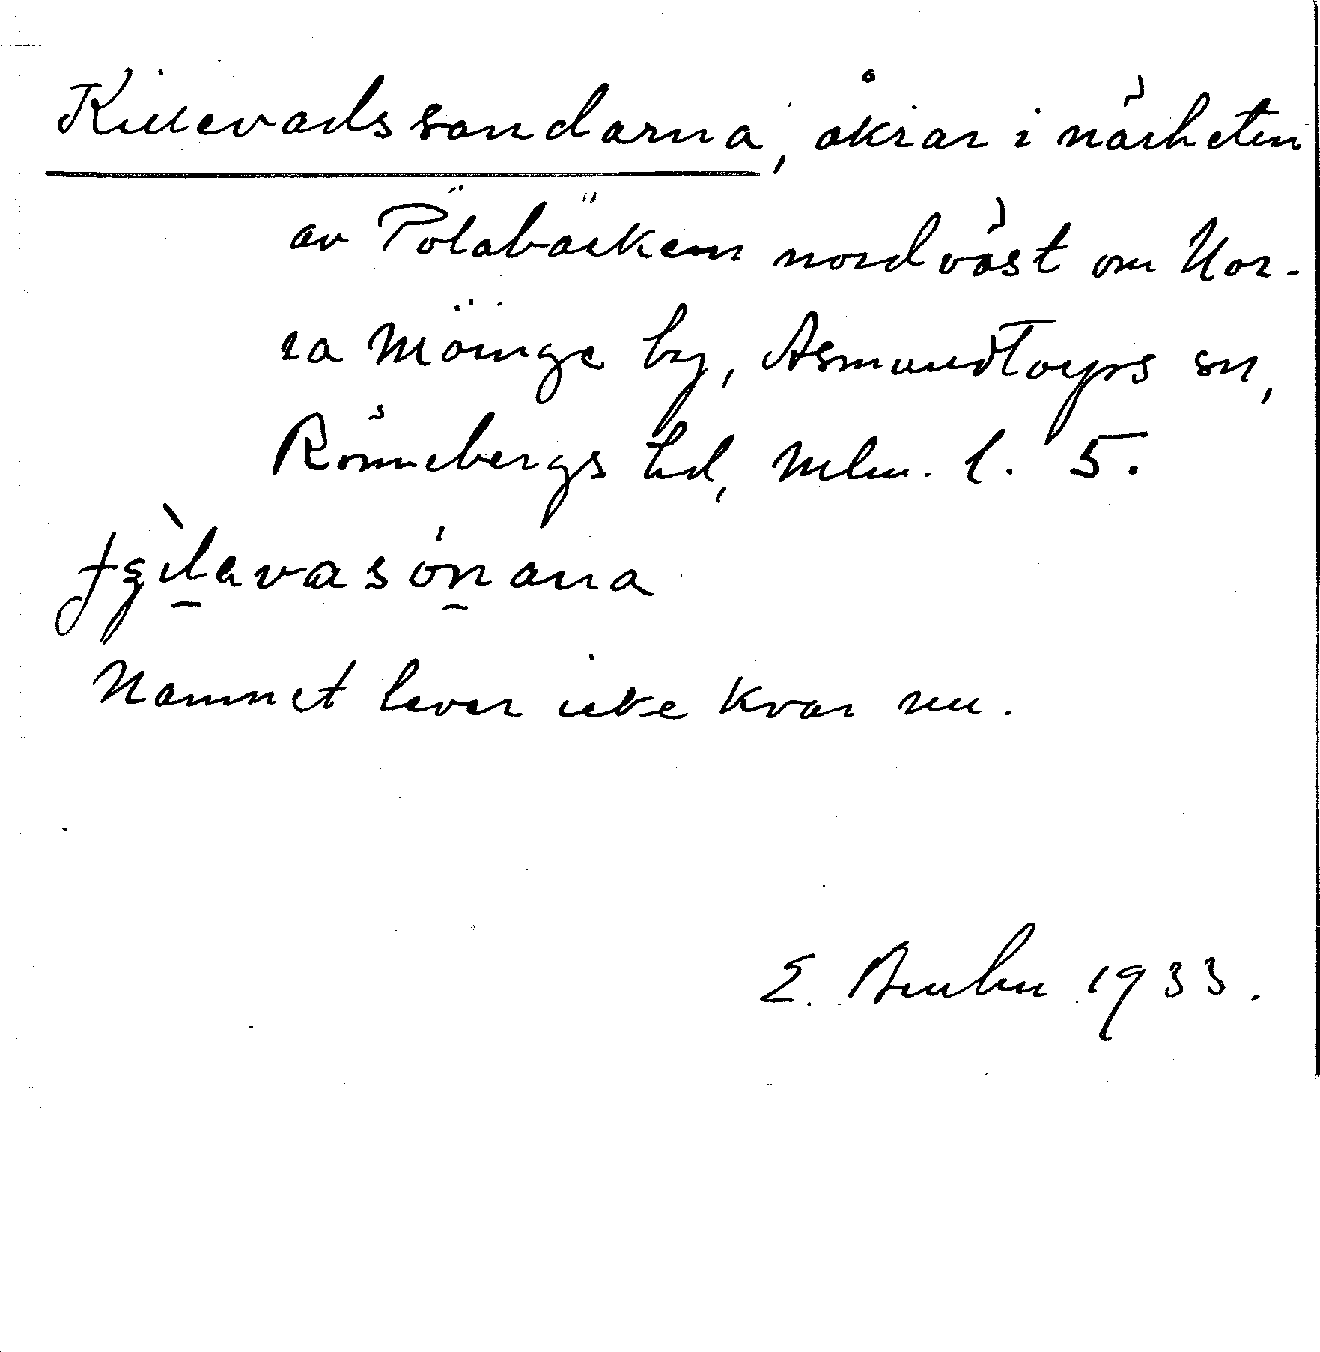 Killevadssandarna, åkrar i närheten
av Pölabäcken nordväst om Nor-
ra Möinge by, Asmundtorps sn,
Rönnebergs hd, Mlm. l. 5.
Namnet lever icke kvar nu.
E. 1933.